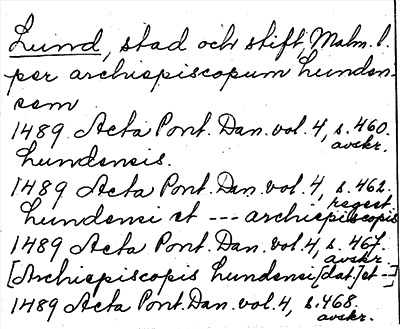 Lund, stad och stift, Malm. l.
per archiepiscopum Lunden-
sem
1489 Acta Pont. Dan. vol. 4, s. 460.
avskr.
Lundensis.
1489 Acta Pont. Dan. vol. 4, s. 462.
regest
Lundensi et --- archiepiscopis
1489 Acta Pont. Dan. vol. 4, s. 467.
avskr.
[Archiepiscopis Lundensi [dat.] et --]
1489 Acta Pont. Dan. vol. 4, s. 468.
avskr.